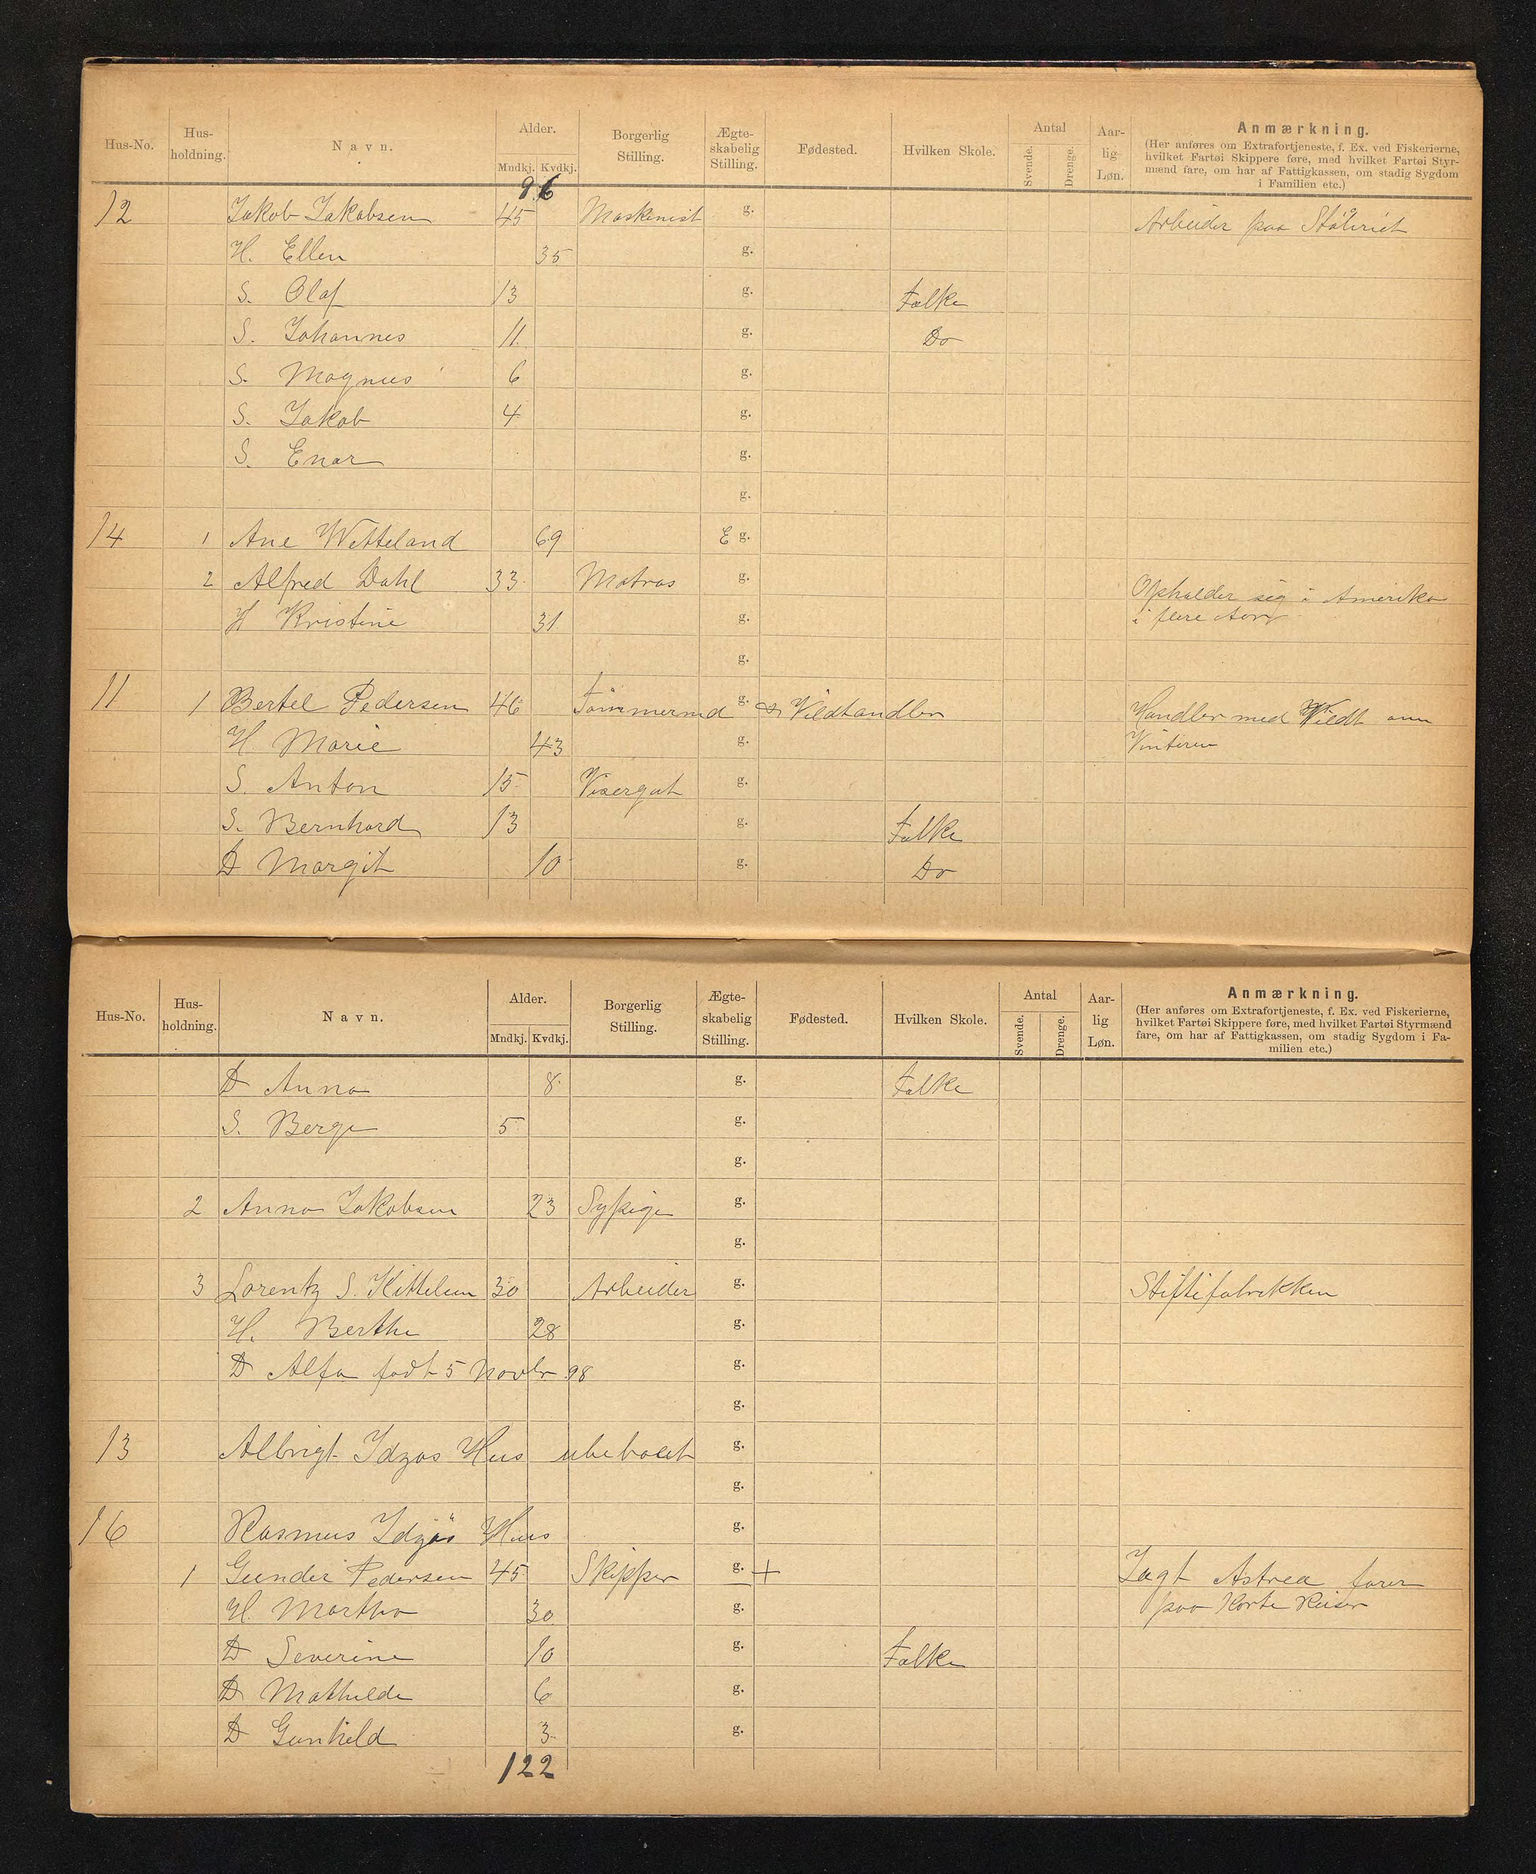 Hus-No. Hus-holdning. Navn. Alder. Mndkj. Kvdkj. Borgerlig Stilling. Ægte-skabelig Stilling. Fødested. Hvilken Skole. Antal Svende. Drenge. Aar-lig Løn. Anmærkning.
(Her anføres om Extrafortjeneste, f. Ex. ved Fiskerierne, hvilket Fartøi Skippere føre, med hvilket Fartøi Styr-mænd fare, om har af Fattigkassen, om stadig Sygdom i Familien etc.)
96
12 Jakob Jakobsen 45 Maskenist g. Arbeider paa Ståleriet
H. Ellen 35 g.
S. Olaf 13 g. Folke
S. Johannes 11 g. Do
S. Magnus 6 g.
S. Jakob 4 g.
S. Enar g.
g.
14 1 Ane Wetteland 69 E g.
2 Alfred Dahl 33 Matros g. Opholder sig i Amerika
H Kristine 31 g. i flere Aar
g.
11 1 Bertel Pedersen 46 Tömmermd g. & Vildthandler Handler med Vildt om
H. Marie 43 g. Vinteren
S. Anton 15 Visergut g.
S. Bernhard 13 g. Folke
D Margit 10 g. Do
Hus-No. Hus-holdning. Navn. Alder. Mndkj. Kvdkj. Borgerlig Stilling. Ægte-skabelig Stilling. Fødested. Hvilken Skole. Antal Svende. Drenge. Aar-lig Løn. Anmærkning.
(Her anføres om Extrafortjeneste, f. Ex. ved Fiskerierne, hvilket Fartøi Skippere føre, med hvilket Fartøi Styrmænd fare, om har af Fattigkassen, om stadig Sygdom i Fa-milien etc.)
D Anna 8 g. Folke
S. Berge 5 g.
g.
2 Anna Jakobsen 23 Sypige g.
g.
3 Lorentz S. Kittelsen 30 Arbeider g. Stiftefabrikken
H. Berthe 28 g.
D Alfa fodt 5 Novbr 98 g.
g.
13 Albrigt Idzøs Hus ubeboet g.
g.
16 Rasmus Idzøs Hus g.
1 Gunder Pedersen 45 Skipper g. + Jagt Astrea farer
H. Martha 30 g. paa Korte Reiser
D Severine 10 g. Folke
D Mathilde 6 g.
D Gunhild 3 g.
122